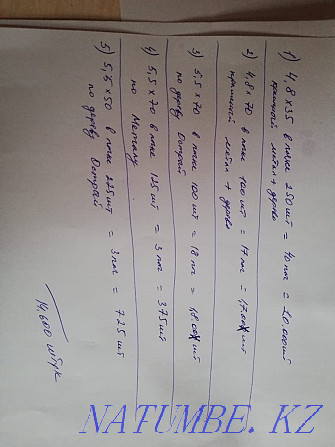 1) 4,8 x 35 в пачке 250 шт = 40 пач = 10.000 шт
крашеный метал + дерево
2) 4,8 x 70 в пачке 100 шт = 17 пач = 1,700 шт
крашеный метал + дерево
3) 5,5 x 70 в пачке 100 шт = 18 пач = 1,800 шт
по дереву Острый
4) 5,5 x 70 в пачке 125 шт = 3 пач = 375 шт
по Металу
5) 5,5 x 50 в пачке шт = 3 пач = 725 шт
по дереву Острый
14.600 штук
NATUMBE.KZ